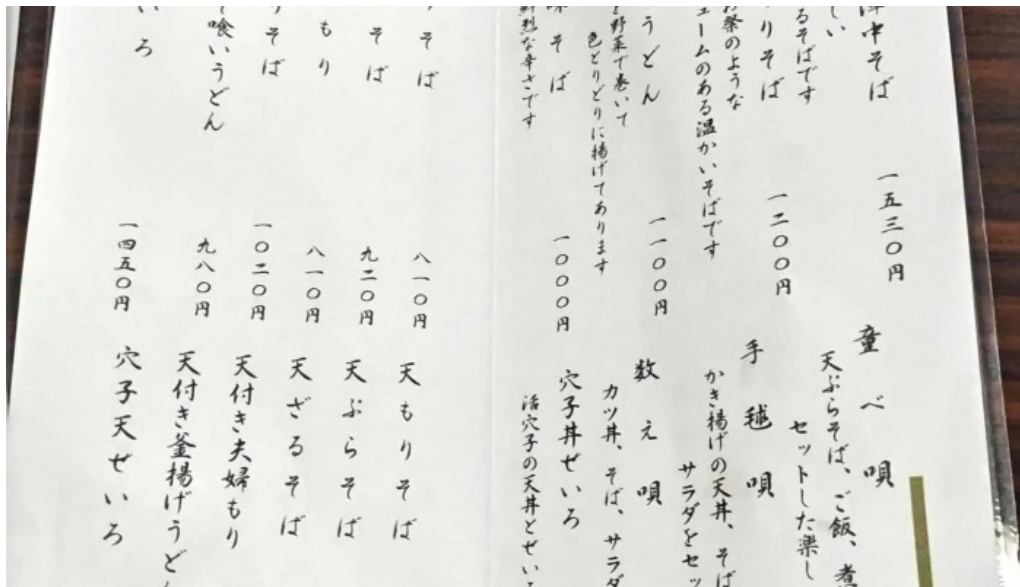 中そば 一五三〇円
しい
るそばです
りそば 一二〇〇円
お祭のような
ュームのある温かいそばです
うどん 一一〇〇円
野菜で巻いて
色とりどりに揚げてあります
そば 一〇〇〇円
鮮烈な辛さです
童べ唄
天ぷらそば、ご飯、煮
セットした楽し
手毬唄
かき揚げの天丼、そば
サラダをセッ
数え唄
カツ丼、そば、サラダ
穴子丼せいろ
活穴子の天丼とせいろ
そば 八一〇円
そば 九二〇円
もり 八一〇円
りそば 一〇二〇円
喰いうどん 九八〇円
いろ 一四五〇円
天もりそば
天ぷらそば
天ざるそば
天付き夫婦もり
天付き釜揚げうどん
穴子天せいろ